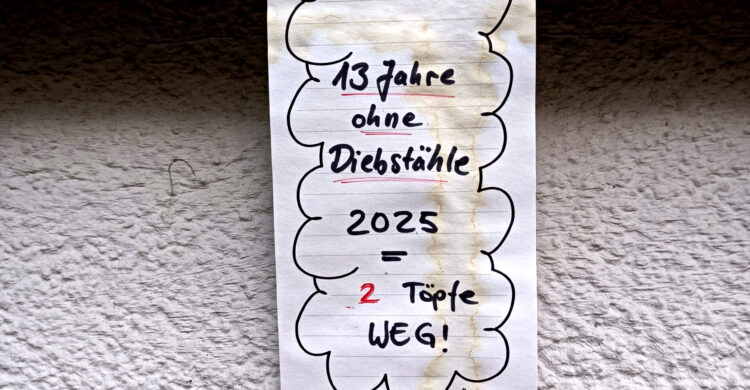 13 Jahre
ohne
Diebstähle
2025
=
2 Töpfe
WEG!